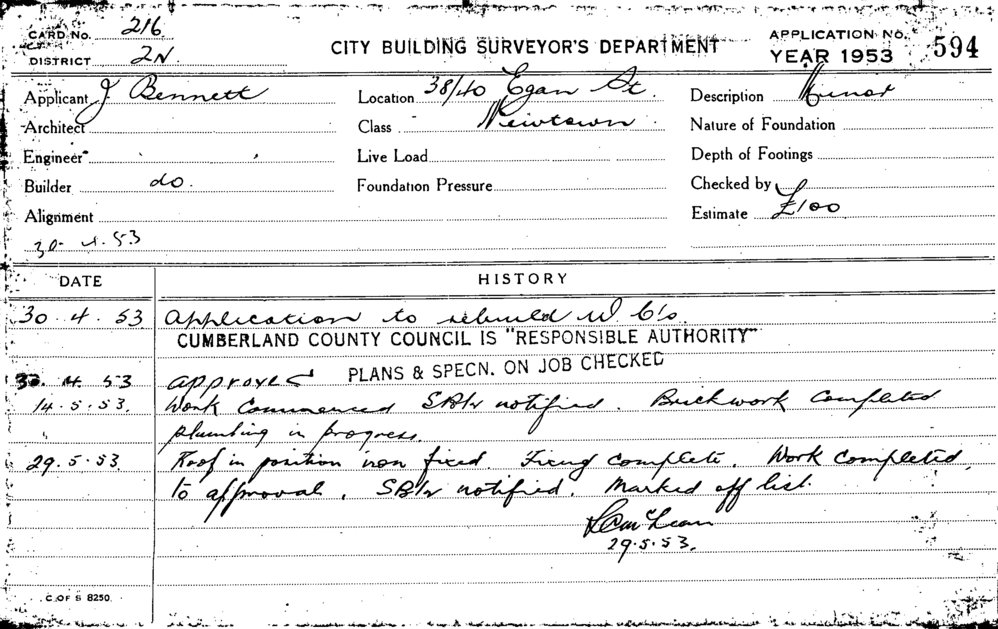 CARD No. 216
DISTRICT 2N
CITY BUILDING SURVEYOR'S DEPARTMENT
APPLICATION No. 594
YEAR 1953
Applicant J Bennett
Location 38/40 Egan St.
Description Minor
Architect
Class Newtown
Nature of Foundation
Engineer
Live Load
Depth of Footings
Builder do.
Foundation Pressure
Checked by
Alignment
Estimate £100
30. 4. 53
DATE HISTORY
30. 4. 53 Application to rebuild W.C's
CUMBERLAND COUNTY COUNCIL IS "RESPONSIBLE AUTHORITY"
PLANS & SPECN. ON JOB CHECKED
30. 4. 53 approved
14. 5. 53. Work Commenced notified. Brickwork Completed
plumbing in progress.
29. 5. 53 Roof in position iron fixed. Fixing complete. Work completed,
to approval. notified. Marked off list.
29.5.53.
C. OF S 8250.